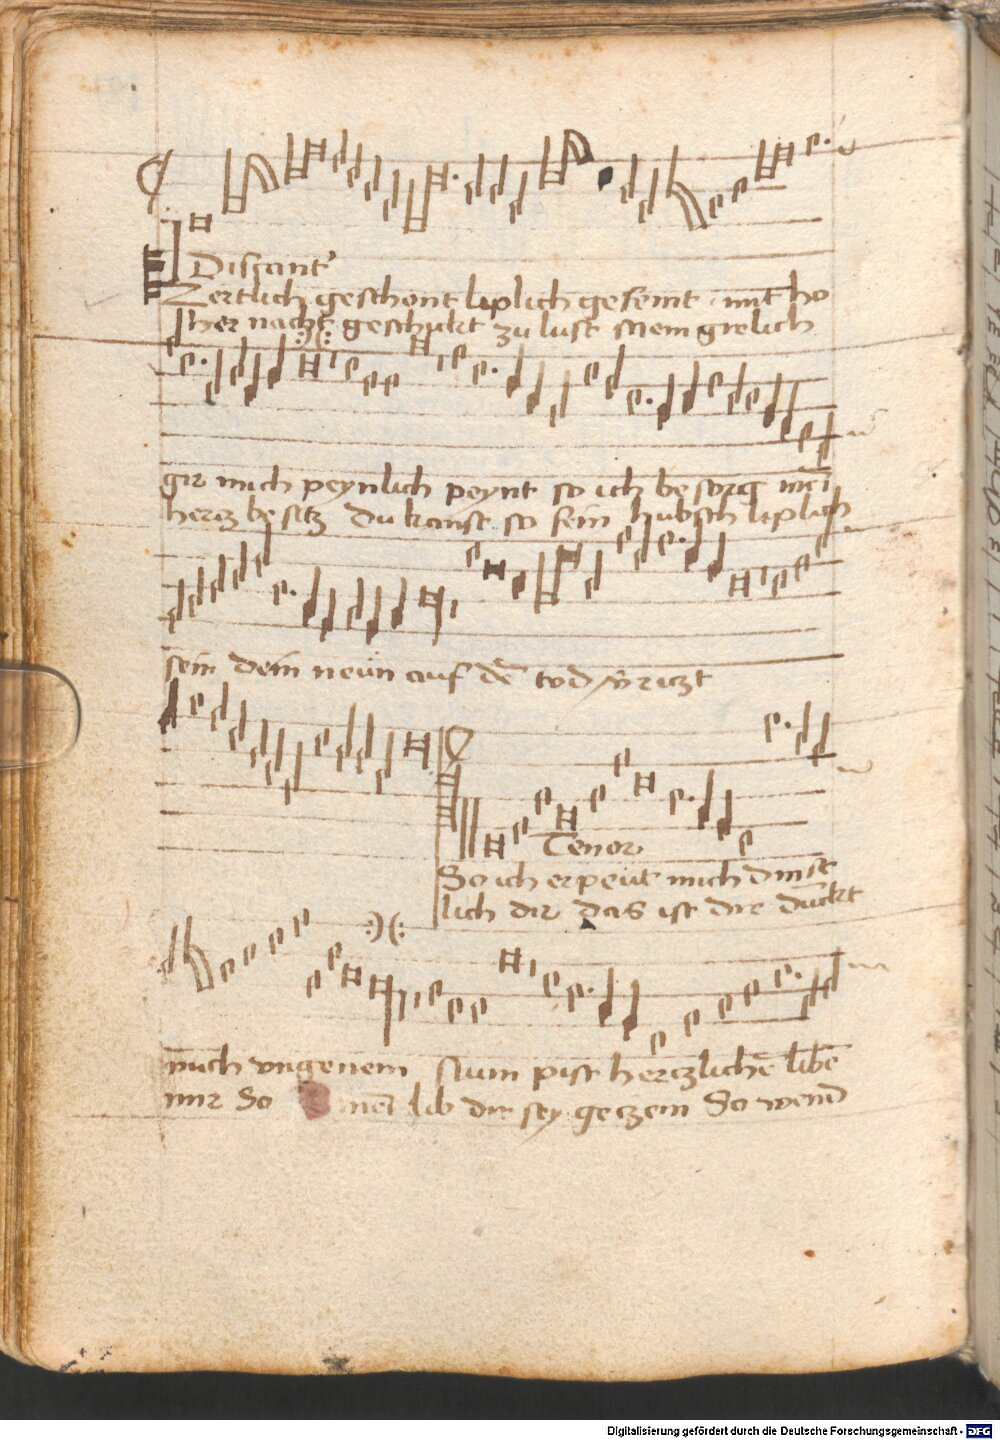 Discant
Zertlich geschönt liplich gefeint mit ho
her nacht geschickt zu lust
gir mich peynlich peynt so ich besorg mei
hercz besitz du kanst so fein hubsch liplich
sein dein neün auf den tod
Tenor
So ich erpeüt mich dinst
lich dir das ist dir dückt
mich vngenem pist herczliche libe
mir So mei lib dir sey geczem So
Digitalisierung gefördert durch die Deutsche Forschungsgemeinschaft - DFG